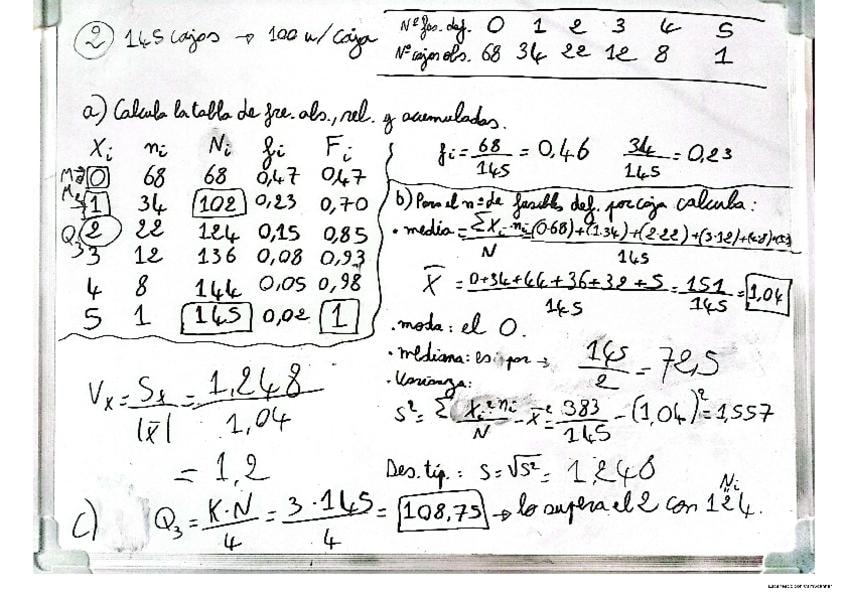 ② 145 cajas → 100 u/caja
Nº fus. def. 0 1 2 3 4 5
Nº cajas obs. 68 34 22 12 8 1
a) Calcula la tabla de fre. abs., rel. y acumuladas.
Xi ni Ni fi Fi
Mo 0 68 68 0,47 0,47
Me 1 34 102 0,23 0,70
Q3 2 22 124 0,15 0,85
3 12 136 0,08 0,93
4 8 144 0,05 0,98
5 1 145 0,02 1
fi = 68/145 = 0,46 34/145 = 0,23
b) Para el nº de fusibles def. por caja calcula:
· media = ΣXi·ni/N = (0·68)+(1·34)+(2·22)+(3·12)+(4·8)+(5·1)/145
X̄ = 0+34+44+36+32+5/145 = 151/145 = 1,04
· moda: el 0.
· mediana: es por → 145/2 = 72,5
· Varianza:
S² = Σ Xi²·ni/N - X̄² = 383/145 - (1,04)² = 1,557
Des. tip.: S = √S² = 1,248
Vx = Sx/|x̄| = 1,248/1,04
= 1,2
c) Q3 = K·N/4 = 3·145/4 = 108,75 → lo supera el 2 con 124.
Ni